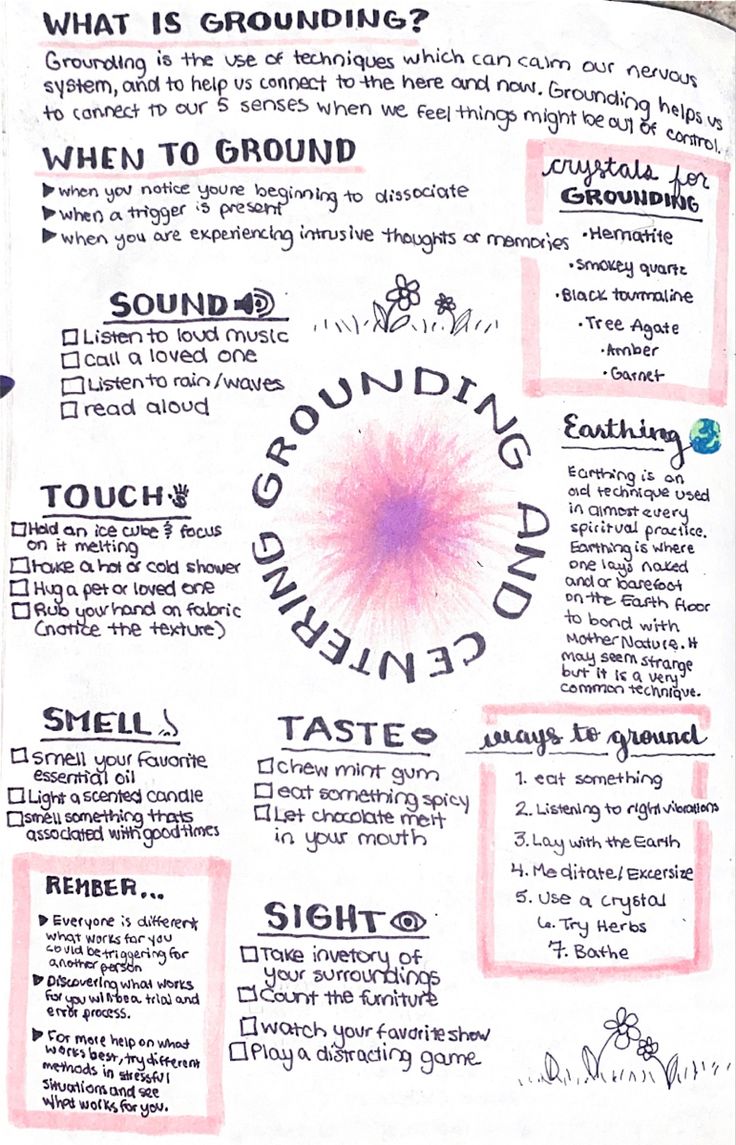 WHAT IS GROUNDING?
Grounding is the use of techniques which can calm our nervous
system, and to help us connect to the here and now. Grounding helps us
to connect to our 5 senses when we feel things might be out of control.
WHEN TO GROUND
when you notice youre beginning to dissociate
when a trigger is present
when you are experiencing intrusive thoughts or memories
crystals for
GROUNDING
•Hematite
•Smokey quartz
•Black tourmaline
•Tree Agate
•Amber
•Garnet
SOUND
Listen to loud music
Call a loved one
Listen to rain/waves
read aloud
GROUNDING AND CENTERING
Earthing
Earthing is an
old technique used
in almost every
spiritual practice.
Earthing is where
one lays naked
and/or barefoot
on the Earth floor
to bond with
Mother Nature. It
may seem strange
but it is a very
common technique.
TOUCH
Hold an ice cube & focus
on it melting
take a hot or cold shower
Hug a pet or loved one
Rub your hand on fabric
(notice the texture)
SMELL
Smell your favorite
essential oil
Light a scented candle
smell something thats
associated with good times
TASTE
chew mint gum
eat something spicy
Let chocolate melt
in your mouth
ways to ground
1. eat something
2. Listening to right vibrations
3. Lay with the Earth
4. Meditate/Excersize
5. Use a Crystal
6. Try Herbs
7. Bathe
REMBER...
Everyone is different
what works for you
could be triggering for
another person
Discovering what works
for you will be a trial and
error process.
For more help on what
works best, try different
methods in stressful
situations and see
what works for you.
SIGHT
Take invetory of
your surroundings
Count the furniture
watch your favorite show
Play a distracting game